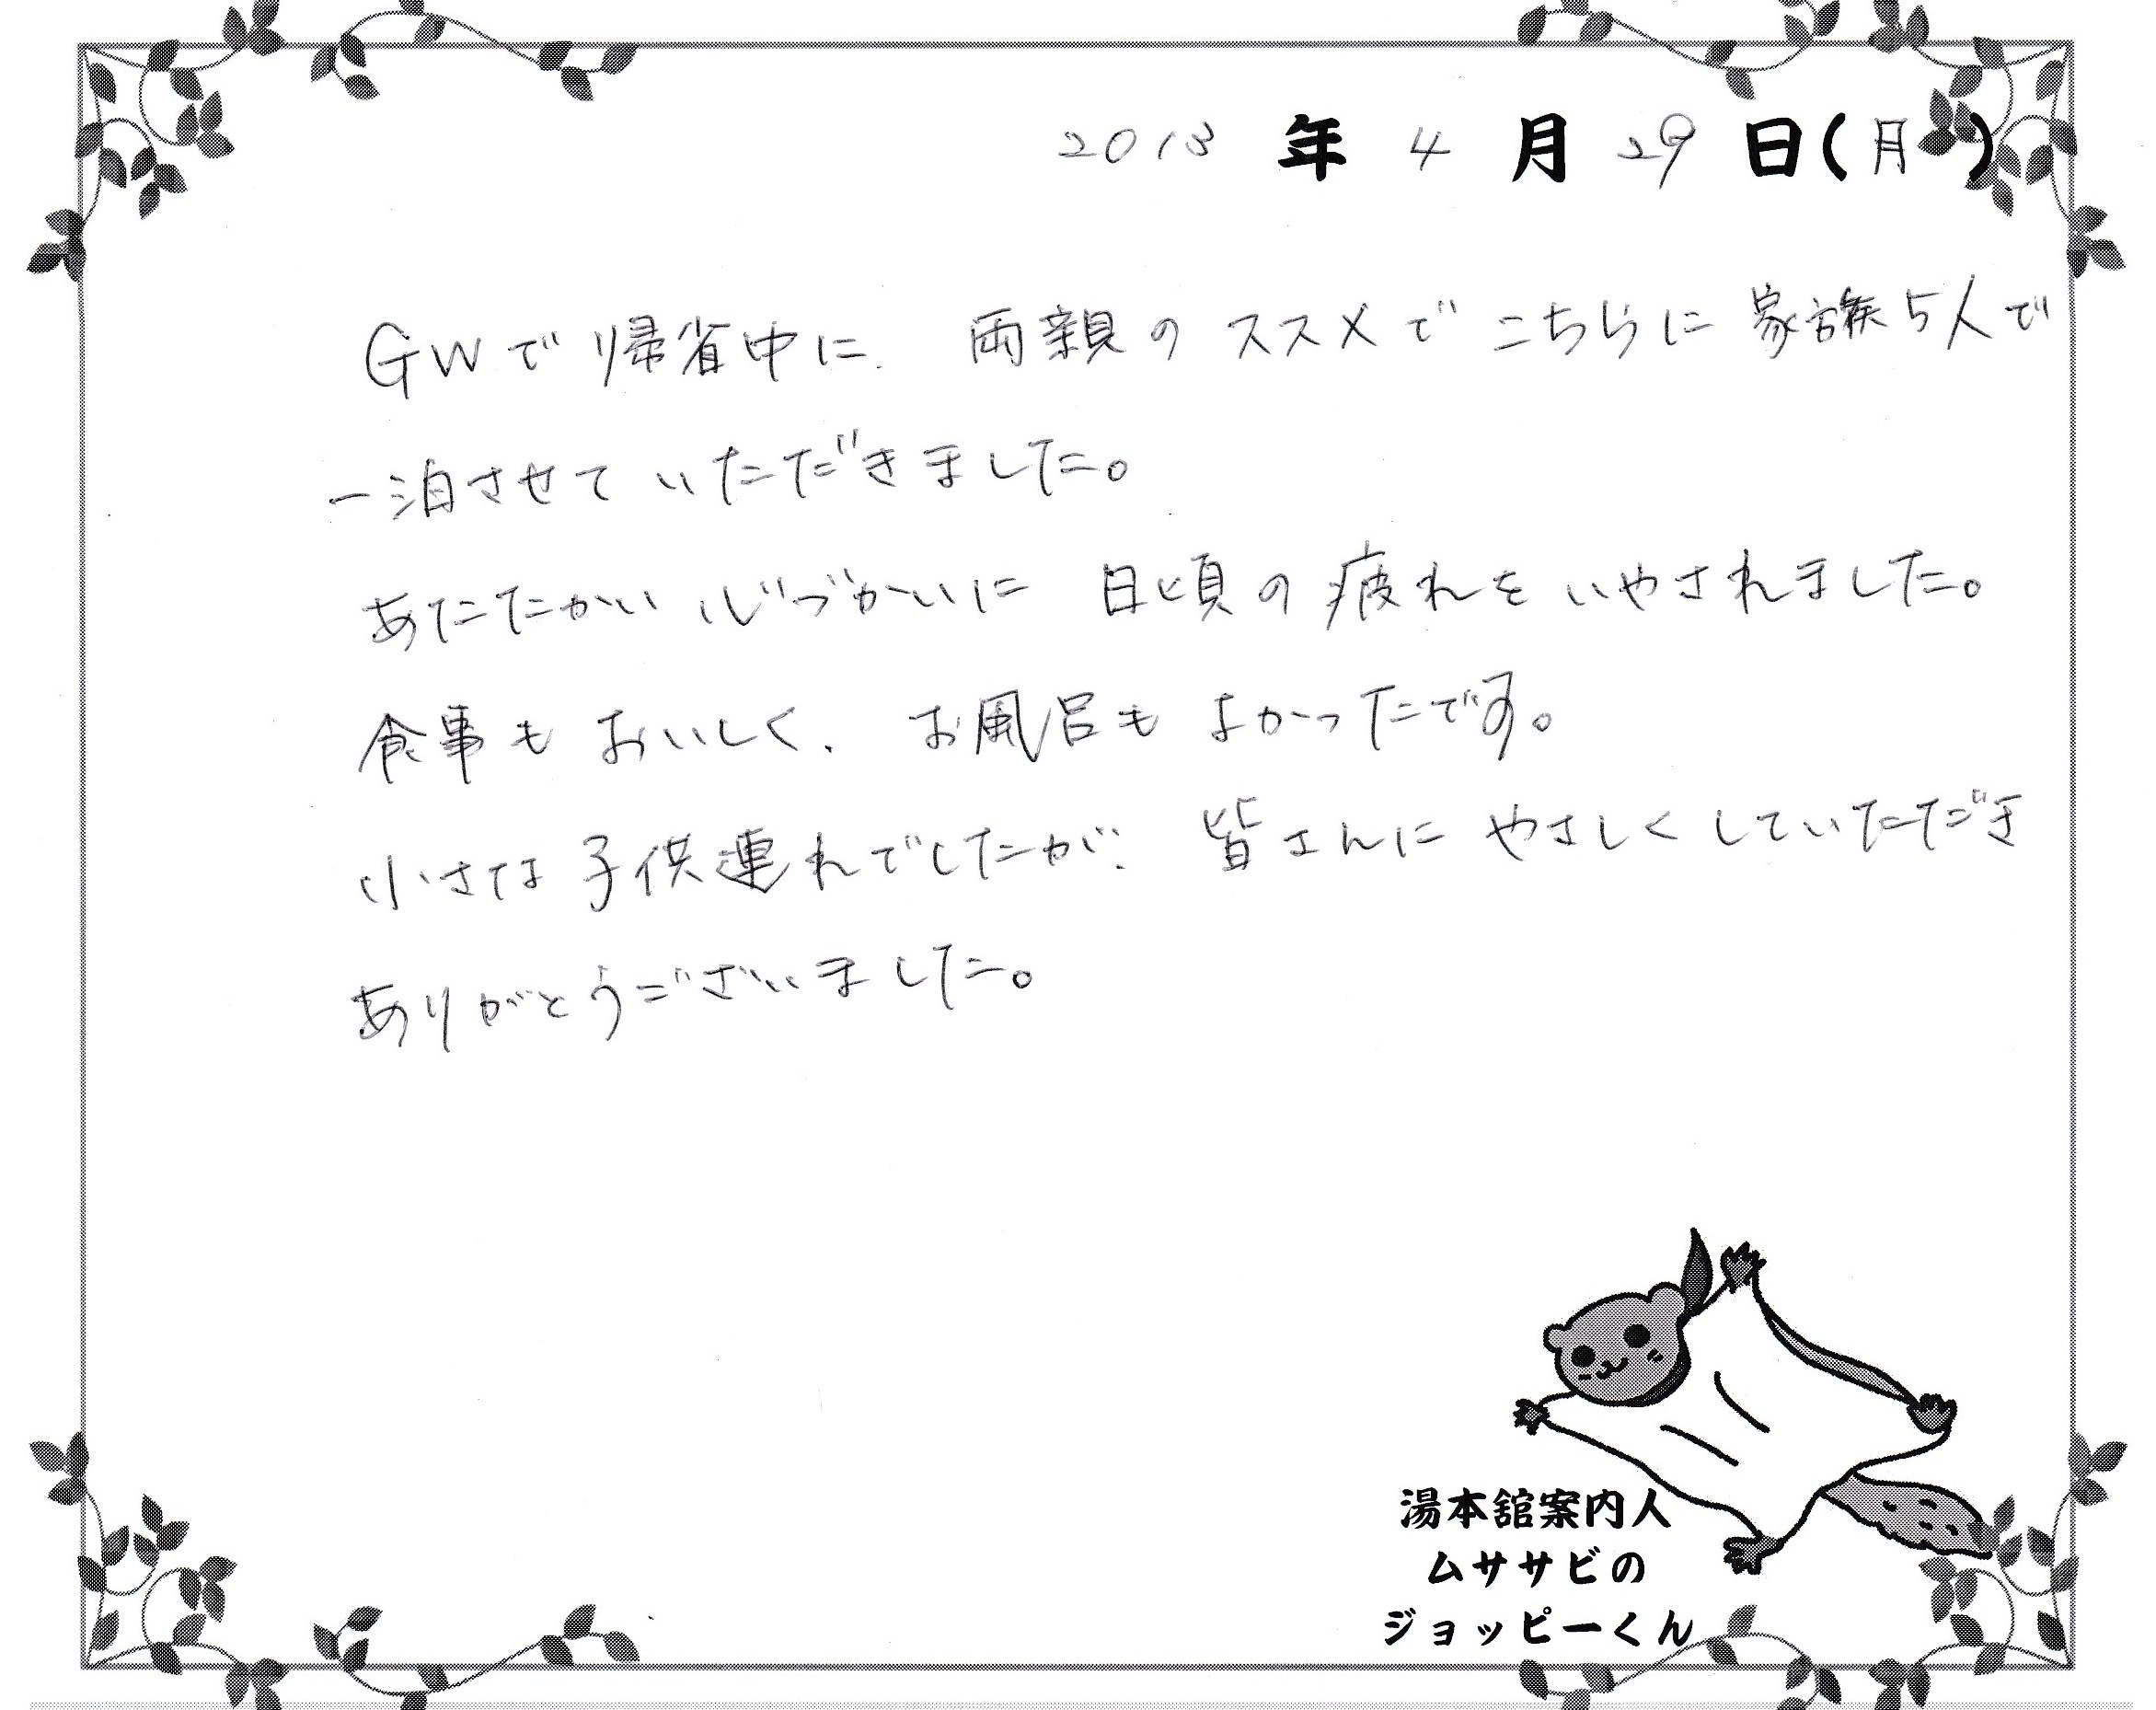 2013 年 4 月 29 日(月)
GWで帰省中に、両親のススメでこちらに家族5人で
一泊させていただきました。
あたたかい心づかいに 日頃の疲れをいやされました。
食事もおいしく、お風呂もよかったです。
小さな子供連れでしたが、皆さんにやさしくしていただき
ありがとうございました。
湯本舘案内人
ムササビの
ジョッピーくん